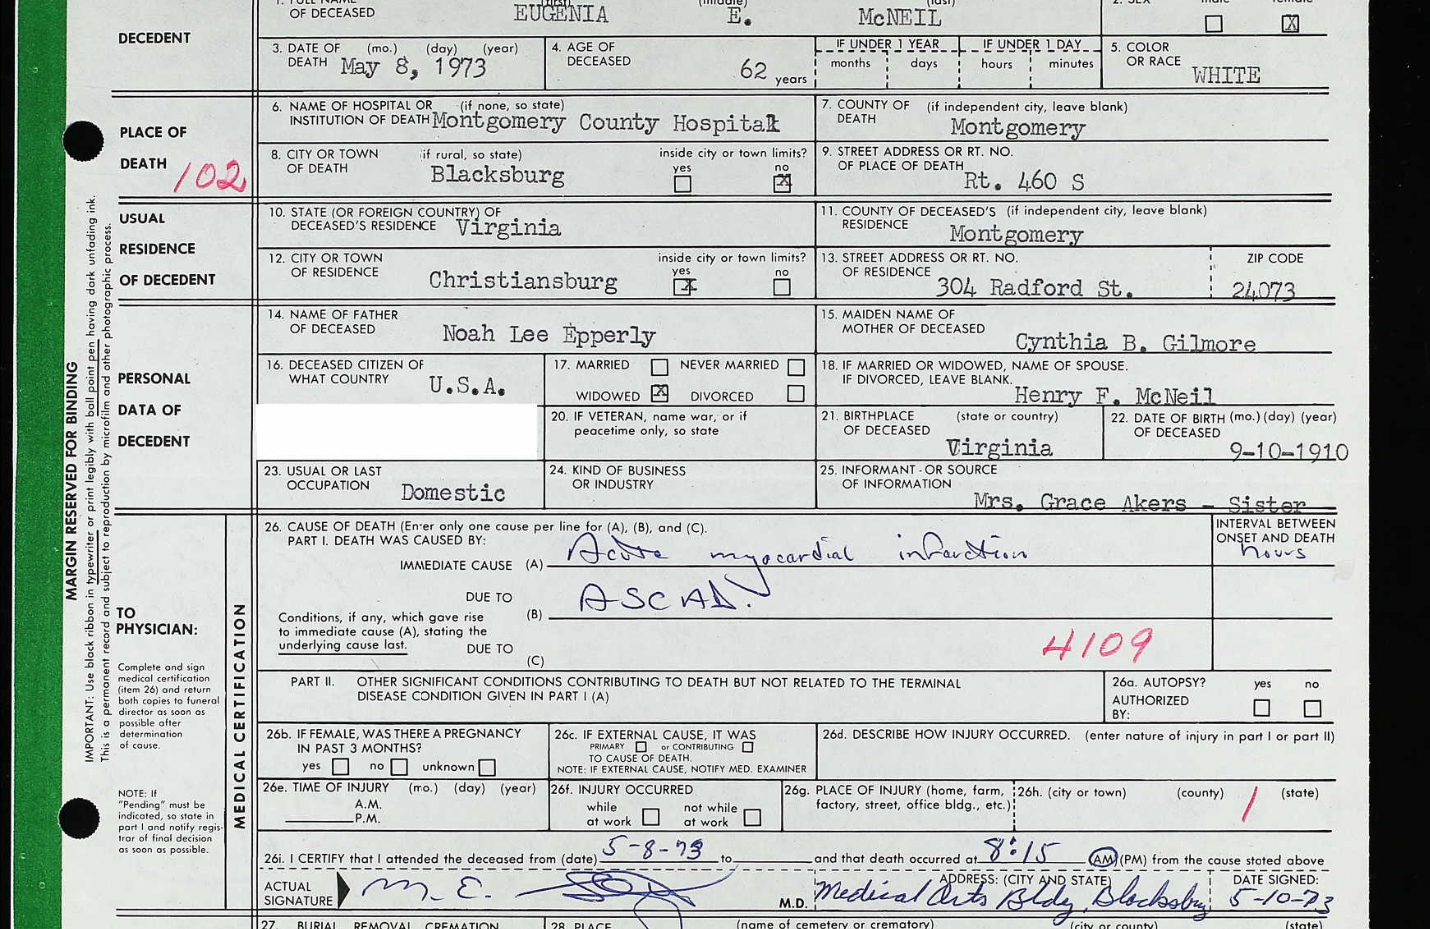 1. FULL NAME (first) (middle) (last) 2. SEX male female
OF DECEASED EUGENIA E. McNEIL ☐ ☒
DECEDENT
3. DATE OF (mo.) (day) (year) 4. AGE OF IF UNDER 1 YEAR IF UNDER 1 DAY 5. COLOR
DEATH May 8, 1973 DECEASED 62 years months days hours minutes OR RACE WHITE
6. NAME OF HOSPITAL OR (if none, so state) 7. COUNTY OF (if independent city, leave blank)
INSTITUTION OF DEATH Montgomery County Hospital DEATH Montgomery
PLACE OF
DEATH 102
8. CITY OR TOWN if rural, so state) inside city or town limits? 9. STREET ADDRESS OR RT. NO.
OF DEATH Blacksburg yes ☐ no ☒ OF PLACE OF DEATH Rt. 460 S
USUAL
RESIDENCE
OF DECEDENT
10. STATE (OR FOREIGN COUNTRY) OF 11. COUNTY OF DECEASED'S (if independent city, leave blank)
DECEASED'S RESIDENCE Virginia RESIDENCE Montgomery
12. CITY OR TOWN inside city or town limits? 13. STREET ADDRESS OR RT. NO. ZIP CODE
OF RESIDENCE Christiansburg yes ☒ no ☐ OF RESIDENCE 304 Radford St. 24073
14. NAME OF FATHER 15. MAIDEN NAME OF
OF DECEASED Noah Lee Epperly MOTHER OF DECEASED Cynthia B. Gilmore
PERSONAL
DATA OF
DECEDENT
16. DECEASED CITIZEN OF 17. MARRIED ☐ NEVER MARRIED ☐ 18. IF MARRIED OR WIDOWED, NAME OF SPOUSE.
WHAT COUNTRY U.S.A. WIDOWED ☒ DIVORCED ☐ IF DIVORCED, LEAVE BLANK. Henry F. McNeil
20. IF VETERAN, name war, or if 21. BIRTHPLACE (state or country) 22. DATE OF BIRTH (mo.) (day) (year)
peacetime only, so state OF DECEASED Virginia OF DECEASED 9-10-1910
23. USUAL OR LAST 24. KIND OF BUSINESS 25. INFORMANT - OR SOURCE
OCCUPATION Domestic OR INDUSTRY OF INFORMATION Mrs. Grace Akers - Sister
MARGIN RESERVED FOR BINDING
IMPORTANT: Use black ribbon in typewriter or print legibly with ball point pen having dark unfading ink.
This is a permanent record and subject to reproduction by microfilm and other photographic process.
26. CAUSE OF DEATH (Enter only one cause per line for (A), (B), and (C). INTERVAL BETWEEN
PART I. DEATH WAS CAUSED BY: ONSET AND DEATH
IMMEDIATE CAUSE (A) Acute myocardial infarction hours
DUE TO
(B) ASCAD.
Conditions, if any, which gave rise
to immediate cause (A), stating the
underlying cause last. DUE TO
(C) 4109
TO
PHYSICIAN:
Complete and sign
medical certification
(item 26) and return
both copies to funeral
director as soon as
possible after
determination
of cause.
NOTE: If
"Pending" must be
indicated, so state in
part I and notify regis-
trar of final decision
as soon as possible.
MEDICAL CERTIFICATION
PART II. OTHER SIGNIFICANT CONDITIONS CONTRIBUTING TO DEATH BUT NOT RELATED TO THE TERMINAL
DISEASE CONDITION GIVEN IN PART I (A)
26a. AUTOPSY? yes no
AUTHORIZED ☐ ☐
BY:
26b. IF FEMALE, WAS THERE A PREGNANCY 26c. IF EXTERNAL CAUSE, IT WAS 26d. DESCRIBE HOW INJURY OCCURRED. (enter nature of injury in part I or part II)
IN PAST 3 MONTHS? PRIMARY ☐ or CONTRIBUTING ☐
TO CAUSE OF DEATH.
yes ☐ no ☐ unknown ☐ NOTE: IF EXTERNAL CAUSE, NOTIFY MED. EXAMINER
26e. TIME OF INJURY (mo.) (day) (year) 26f. INJURY OCCURRED 26g. PLACE OF INJURY (home, farm, 26h. (city or town) (county) (state)
A.M. while not while factory, street, office bldg., etc.) 1
P.M. at work ☐ at work ☐
26i. I CERTIFY that I attended the deceased from (date) 5-8-73 to and that death occurred at 8:15 (AM) (PM) from the cause stated above
ACTUAL ADDRESS: (CITY AND STATE) DATE SIGNED:
SIGNATURE M. E. M.D. Medical Arts Bldg, Blacksburg 5-10-73
27. BURIAL REMOVAL CREMATION 28. PLACE (name of cemetery or crematory) (city or county) (state)